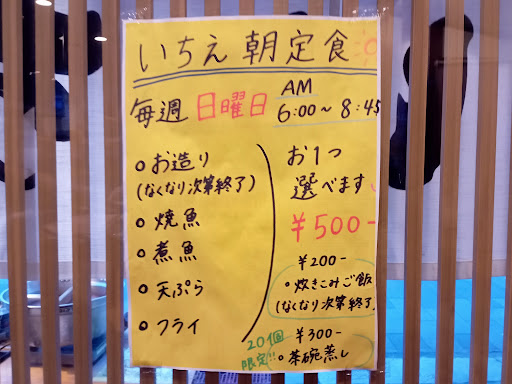 いちえ 朝定食
毎週 日曜日 AM 6:00〜8:45
○ お造り
(なくなり次第終了)
○ 焼魚
○ 煮魚
○ 天ぷら
○ フライ
お1つ
選べます
¥500-
¥200-
・炊きこみご飯
(なくなり次第終了
20個
限定!!
¥300-
・茶碗蒸し